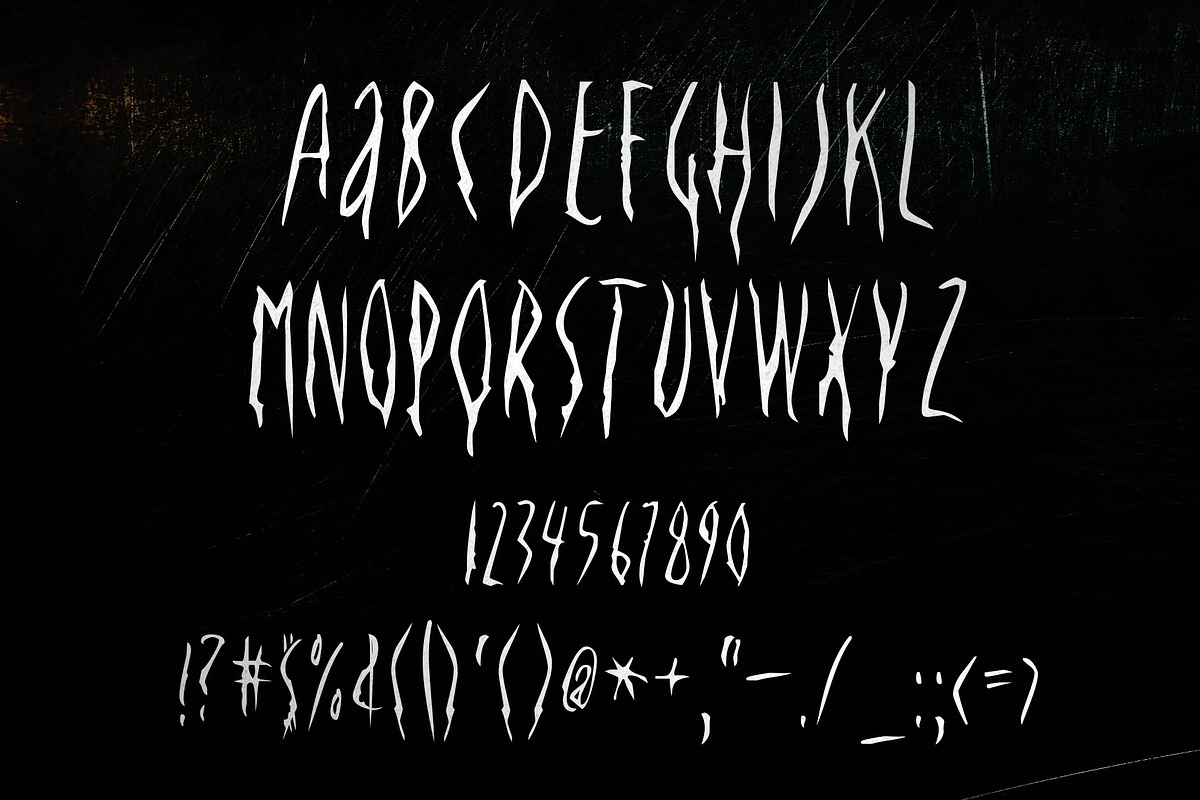 AaBCDEFGHIJKL
MNOPQRSTUVWXYZ
1234567890
!?#$%&()'()@*+,"-./_:;(=)